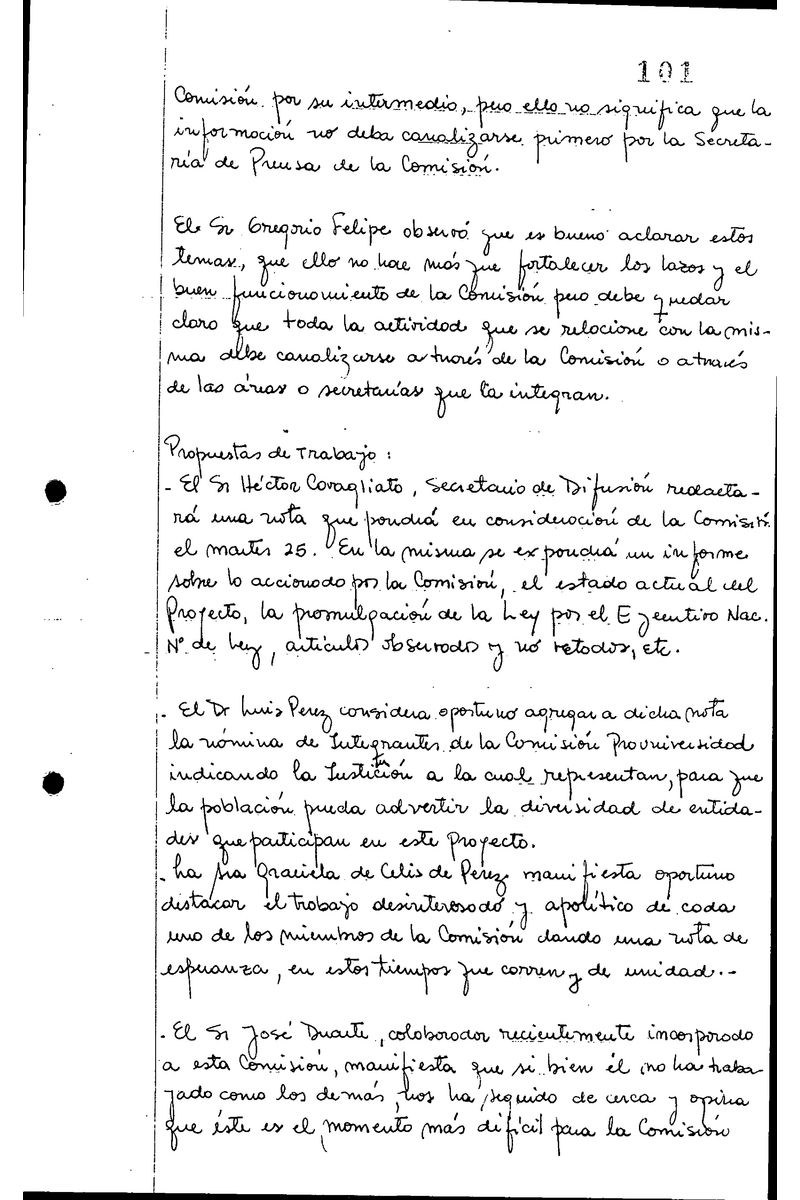 101
Comisión por su intermedio, pero ello no significa que la
información no deba canalizarse primero por la Secreta-
ría de Prensa de la Comisión.
El Sr Gregorio Felipe observó que es bueno aclarar estos
temas, que ello no hace más que fortalecer los lazos y el
buen funcionamiento de la Comisión pero debe quedar
claro que toda la actividad que se relacione con la mis-
ma debe canalizarse a través de la Comisión o a través
de las áreas o secretarías que la integran.
Propuestas de Trabajo :
- El Sr Héctor Covagliato, Secretario de Difusión redacta-
rá una nota que pondrá en consideración de la Comisión
el martes 25. En la misma se expondrá un informe
sobre lo accionado por la Comisión, el estado actual del
Proyecto, la promulgación de la Ley por el Ejecutivo Nac.
N° de Ley, artículos observados y no vetados, etc.
. El Dr Luis Perez considera oportuno agregar a dicha nota
la nómina de Integrantes de la Comisión Prouniversidad
indicando la Institución a la cual representan, para que
la población pueda advertir la diversidad de entida-
des que participan en este Proyecto.
. La Sra Graciela de Celis de Perez manifiesta oportuno
distacar el trabajo desinteresado y apolítico de cada
uno de los miembros de la Comisión dando una nota de
esperanza, en estos tiempos que corren y de unidad.-
. El Sr José Duarte, colaborador recientemente incorporado
a esta Comisión, manifiesta que si bien él no ha traba-
jado como los demás, nos ha seguido de cerca y opina
que éste es el momento más difícil para la Comisión